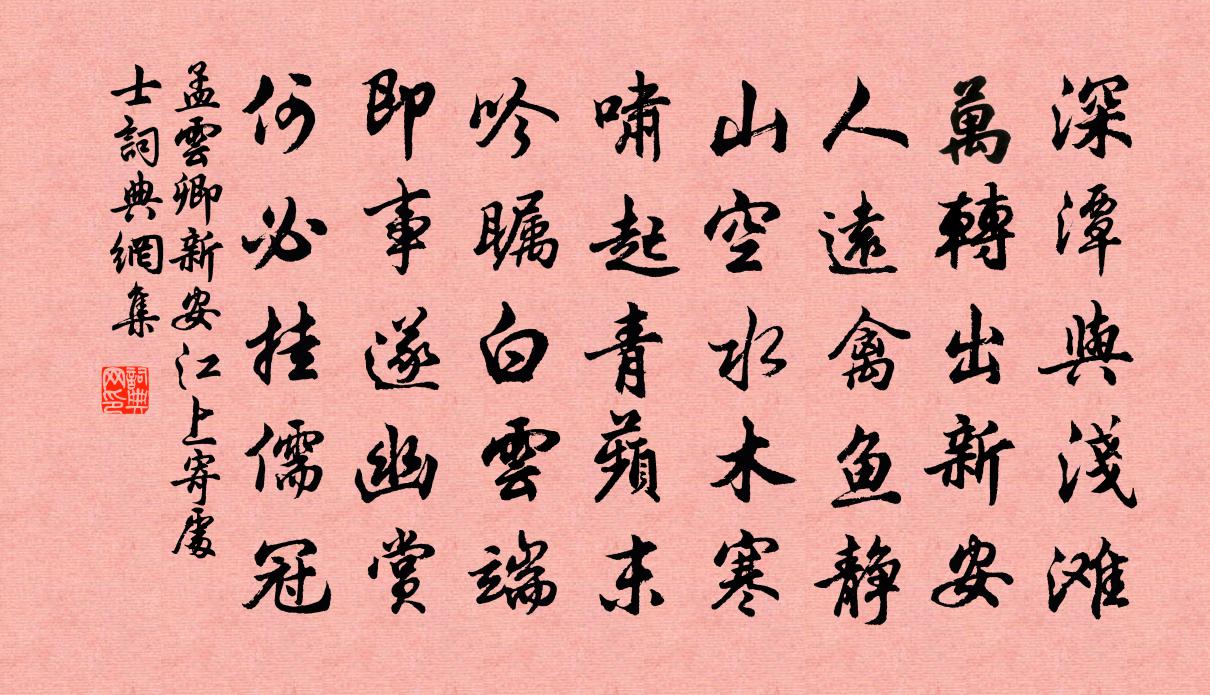 深潭與淺滩
萬轉出新安
人遠禽鱼静
山空水木寒
嘯起青蘋末
吟瞩白雲端
即事遂幽赏
何必挂儒冠
孟雲卿新安江上寄處
士詞典網集
詞典
网印